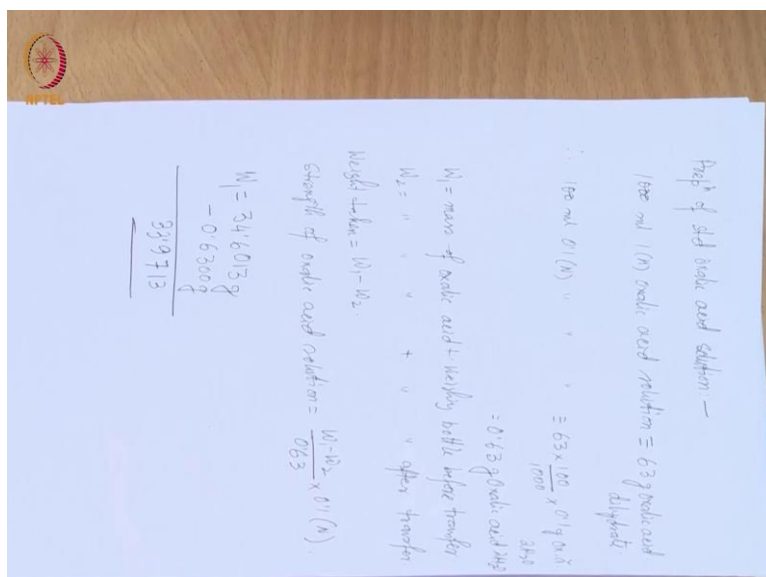 NPTEL
Prepⁿ of std oxalic acid solution —
1000 ml 1(N) oxalic acid solution ≡ 63 g oxalic acid
dihydrate
∴ 100 ml 0.1(N) " " " ≡ 63 × 100/1000 × 0.1 g
2H₂O
= 0.63 g Oxalic acid 2H₂O
W₁ = mass of oxalic acid + weighing bottle before transfer
W₂ = " " " + " " after transfer
Weight taken = W₁ - W₂.
Strength of oxalic acid solution = W₁-W₂/0.63 × 0.1(N).
W₁ = 34.6013 g
- 0.6300 g
33.9713